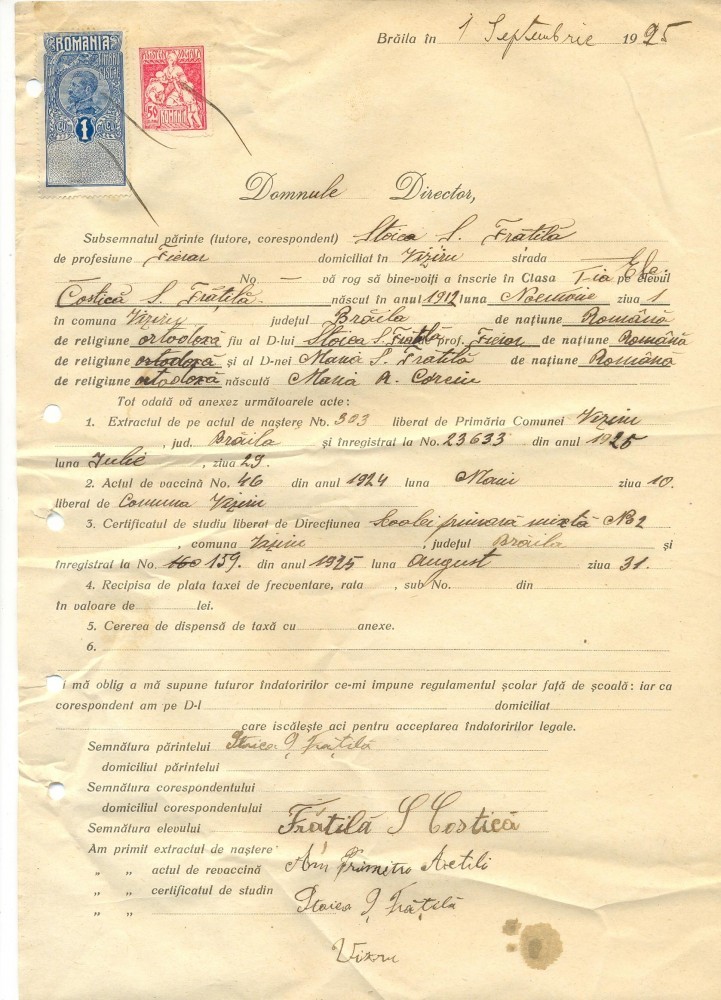 ROMANIA
TIMBRU FISCAL
1
50
ROMANIA
Brăila în 1 Septembrie 1925
Domnule Director,
Subsemnatul părinte (tutore, corespondent) Stoica S. Frățilă
de profesiune Fierar domiciliat în Viziru strada
No — vă rog să bine-voiți a înscrie în Clasa I-a pe elevul
Costică S. Frățilă născut în anul 1912 luna ziua 1
în comuna Viziru județul Brăila de națiune Română
de religiune ortodoxă fiu al D-lui Stoica S. Frățilă prof. Fierar de națiune Română
de religiune ortodoxă și al D-nei Maria S. Frățilă de națiune Română
de religiune ortodoxă născută Maria R.
Tot odată vă anexez următoarele acte :
1. Extractul de pe actul de naștere No. 303 liberat de Primăria Comunei Viziru
, jud. Brăila și înregistrat la No. 23633 din anul 1925
luna Iulie , ziua 29.
2. Actul de vaccină No. 46 din anul 1924 luna Maiu ziua 10.
liberat de Comuna Viziru
3. Certificatul de studiu liberat de Direcțiunea Scoalei primară mixtă No 2
, comuna Viziru , județul Brăila și
înregistrat la No. 160 159. din anul 1925 luna August ziua 31.
4. Recipisa de plata taxei de frecventare, rata , sub No. din
în valoare de lei.
5. Cererea de dispensă de taxă cu anexe.
6.
i mă oblig a mă supune tuturor îndatoririlor ce-mi impune regulamentul școlar față de școală : iar ca
corespondent am pe D-l domiciliat
care iscălește aci pentru acceptarea îndatoririlor legale.
Semnătura părintelui Stoica S. Frățilă
domiciliul părintelui
Semnătura corespondentului
domiciliul corespondentului
Semnătura elevului Frățilă S Costică
Am primit extractul de naștere Am Primitu Actili
„ „ actul de revaccină
„ „ certificatul de studin Stoica S. Frățilă
„ „
Viziru